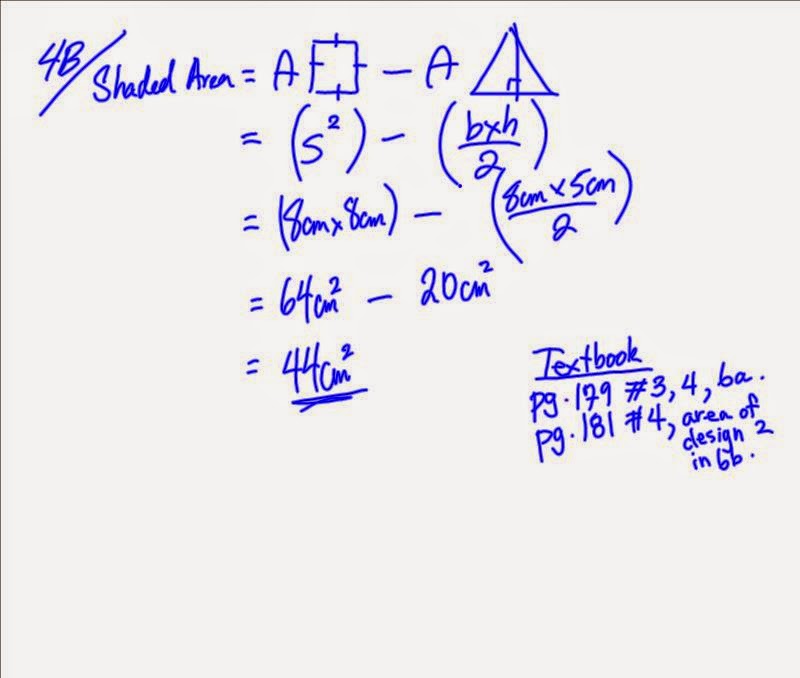 4B/ Shaded Area = A □ − A △
= (s²) − (b×h/2)
= (8cm×8cm) − (8cm×5cm/2)
= 64cm² − 20cm²
= 44cm²
Textbook
pg.179 #3, 4, 6a.
pg.181 #4, area of
design 2
in 6b.